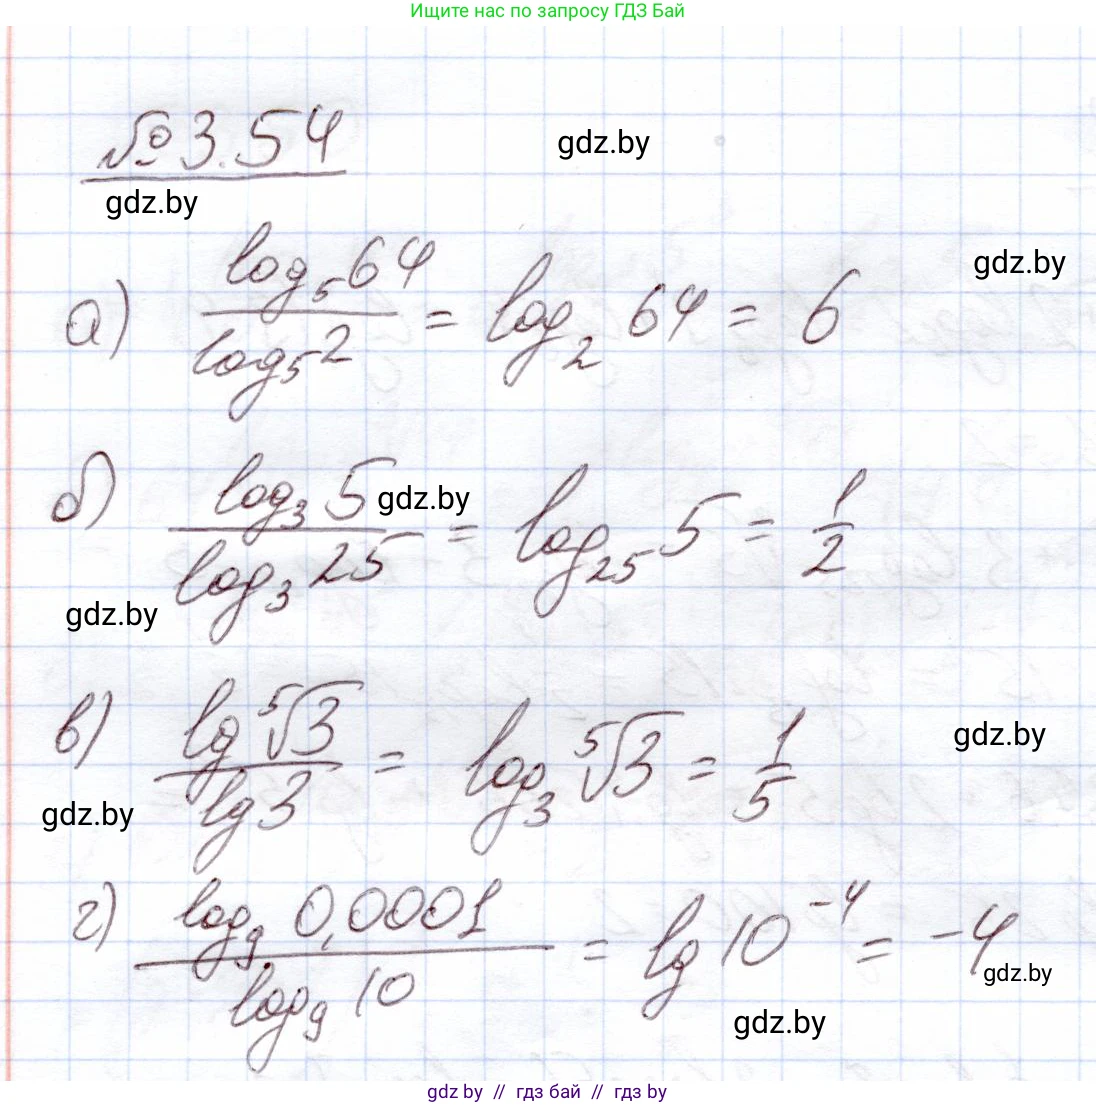 Ищите нас по запросу ГДЗ Бай
№ 3.54
gdz.by
gdz.by
а) log₅64 / log₅2 = log₂ 64 = 6
gdz.by
б) log₃ 5 / log₃ 25 = log₂₅ 5 = 1/2
gdz.by
gdz.by
в) lg ⁵√3 / lg 3 = log₃ ⁵√3 = 1/5
gdz.by
gdz.by
г) log₉ 0,0001 / log₉ 10 = lg 10⁻⁴ = -4
gdz.by
gdz.by
gdz.by // гдз бай // гдз by